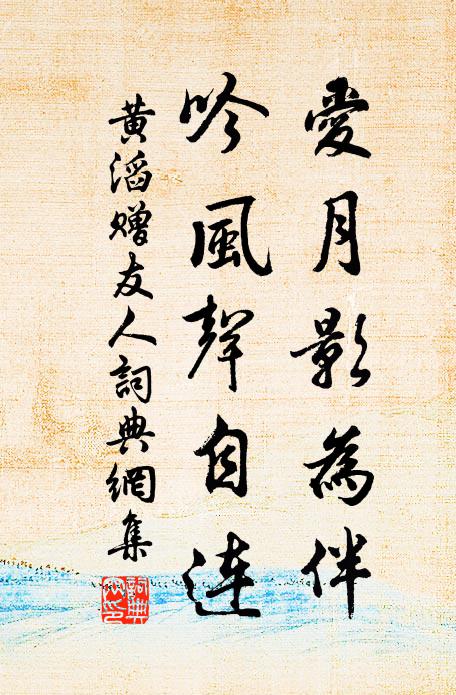 愛月影為伴
吟風聲自連
黃滔贈友人詞典網集